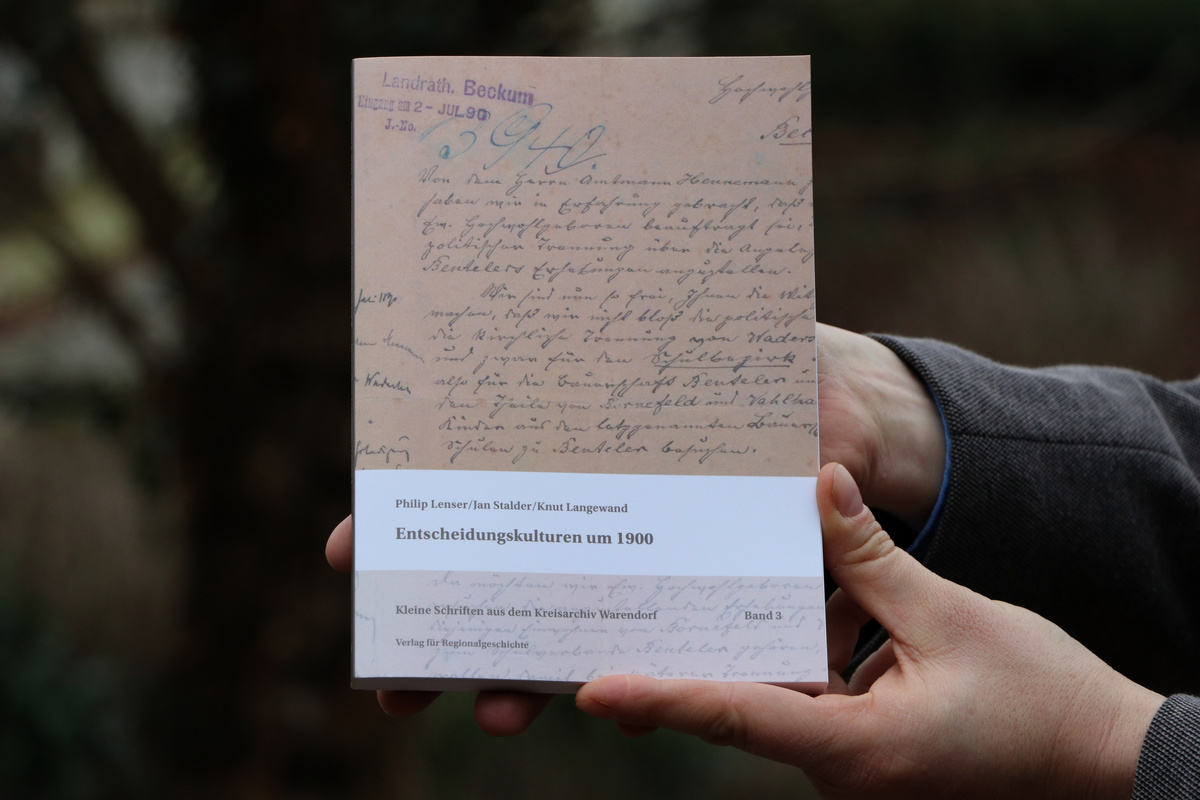 Landrath. Beckum
Eingang am 2 - JUL 90
J.-No.
3940
Hochwohlg
Bec
Von dem Herrn Amtmann Hennemann
haben wir in Erfahrung gebracht, daß
Ew. Hochwohlgeboren beauftragt sei,
politischer Trennung über die Angele
Bentelers Erhebungen anzustellen.
Wir sind nun so frei, Ihnen die Mit
machen, daß wir nicht bloß die politische
die kirchliche Trennung von Waders
und zwar für den Schulbezirk
also für die Bauerschaft Benteler un
den Theile von Bornefeld und Vahlha
Kinder aus den letzgenannten Bauer
Schulen zu Benteler besuchen.
Philip Lenser/Jan Stalder/Knut Langewand
Entscheidungskulturen um 1900
Da möchten wir Ew. Hochwohlgeboren
Kleine Schriften aus dem Kreisarchiv Warendorf Band 3
Einwohner von Bornefeld und
Verlag für Regionalgeschichte
zum Schulverbande Benteler gehören,